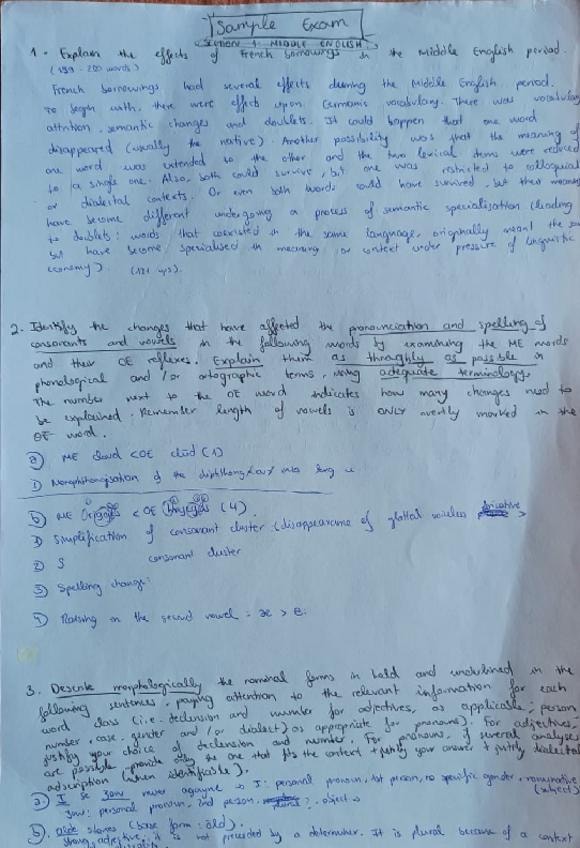 Sample Exam
SECTION 1: MIDDLE ENGLISH
1. Explain the effects of French borrowings in the Middle English period.
(150 - 200 words)
French borrowings had several effects during the Middle English period.
To begin with, there were effects upon Germanic vocabulary. There was vocabulary
attrition, semantic changes and doublets. It could happen that one word
disappeared (usually the native). Another possibility was that the meaning of
one word was extended to the other and the two lexical items were reduced
to a single one. Also, both could survive, but one was restricted to colloquial
or dialectal contexts. Or even both words could have survived, but their meaning
have become different undergoing a process of semantic specialisation (leading
to doublets: words that coexisted in the same language, originally meant the same
but have become specialised in meaning or context under pressure of linguistic
economy).
2. Identify the changes that have affected the pronunciation and spelling of
consonants and vowels in the following words by examining the ME words
and their OE reflexes. Explain them as throughly as possible in
phonological and /or ortographic terms, using adequate terminology.
The number next to the OE word indicates how many changes need to
be explained. Remember length of vowels is ONLY overtly marked in the
OE word.
a) ME cloud < OE clud (1)
1) Monophthongisation of the diphthong into long u
b) ME < OE (4).
1) Simplification of consonant cluster (disappearance of glottal voiceless fricative
2) S consonant cluster
3) Spelling change:
4) Raising on the second vowel: æ > e:
3. Describe morphologically the nominal forms in bold and underlined in the
following sentences, paying attention to the relevant information for each
word class (i.e. declension and number for adjectives, as applicable; person
number, case, gender and /or dialect) as appropriate for pronouns). For adjectives,
justify your choice of declension and number. For pronouns, if several analyses
are possible provide only the one that fits the context + justify your answer + justify dialectal
adscription (when identifiable).
a) I se never agayne → I: personal pronoun, 1st person, no specific gender, nominative
(subject)
personal pronoun, 2nd person, object
b) olde stones (base form: old).
strong adjective: it is not preceded by a determiner. It is plural because of a context